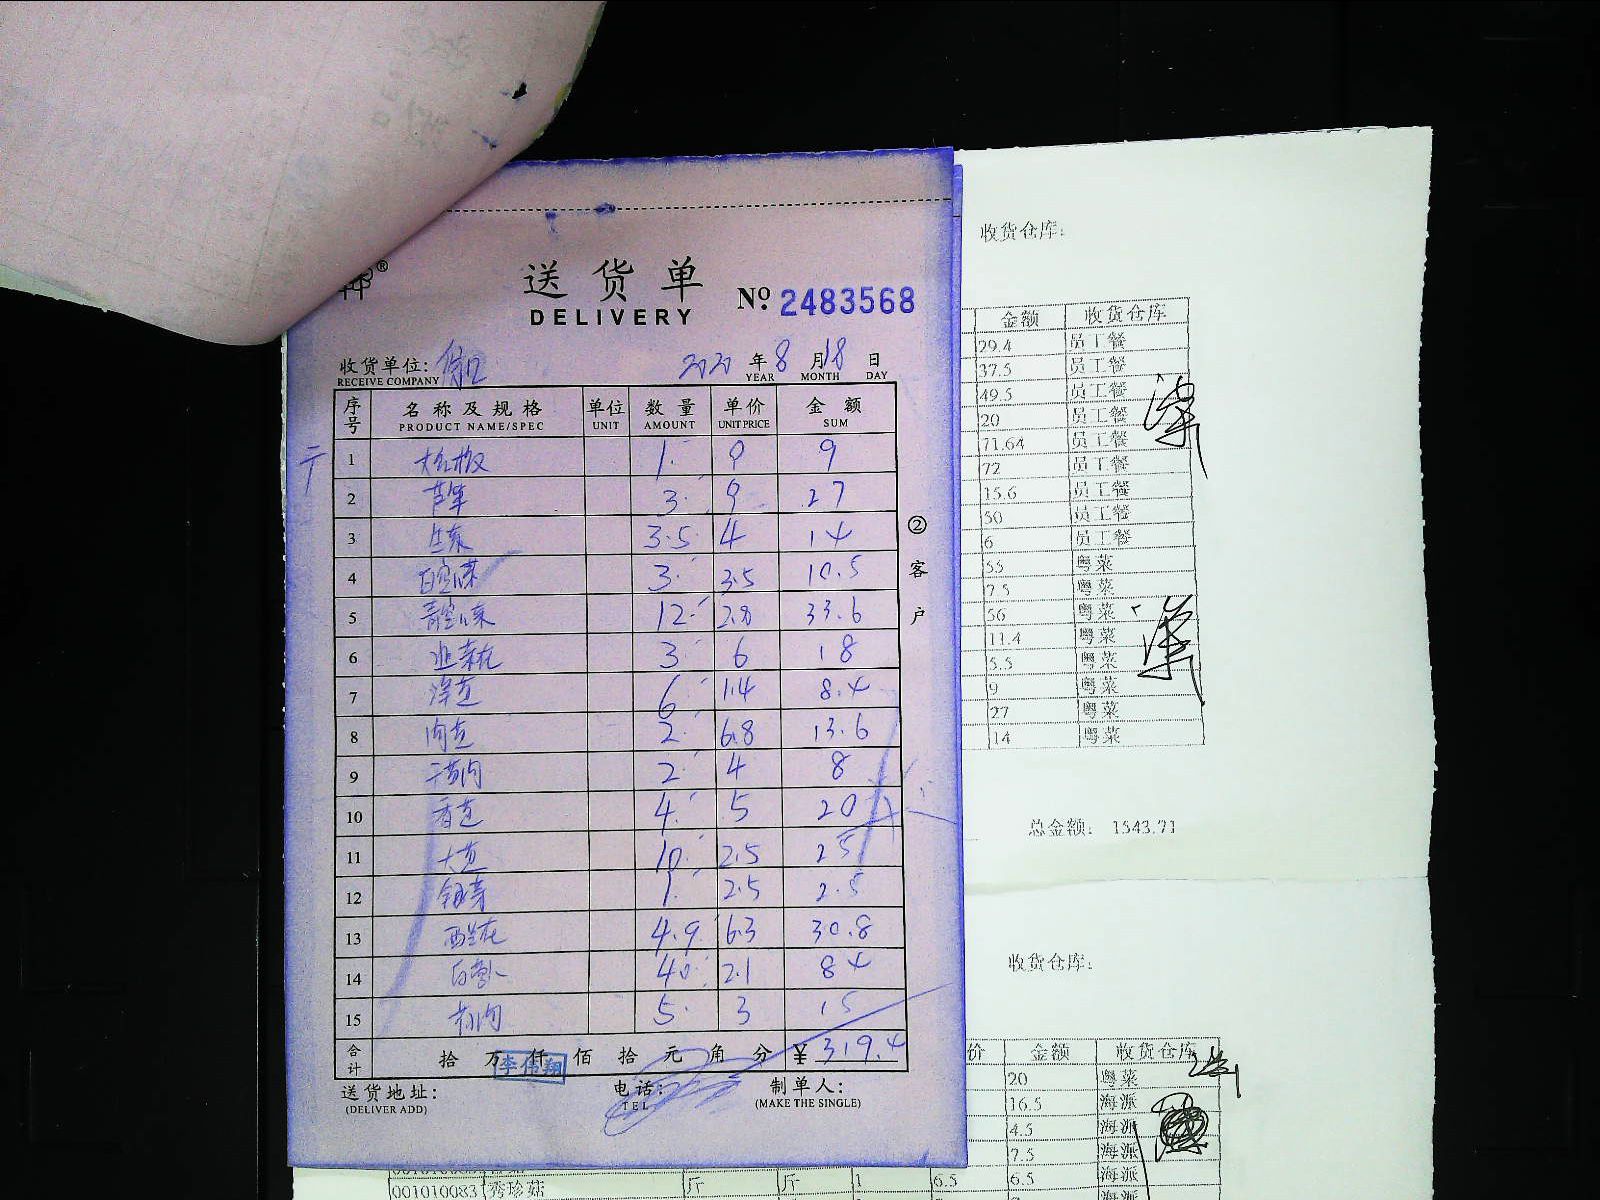 送货单
DELIVERY
№ 2483568
收货单位:
RECEIVE COMPANY
2020 年 8 月 18 日
YEAR MONTH DAY
序号 名称及规格 单位 数量 单价 金额
PRODUCT NAME/SPEC UNIT AMOUNT UNIT PRICE SUM
1 大红椒 1 9 9
2 芦笋 3 9 27
3 生菜 3.5 4 14
4 白空心菜 3 3.5 10.5
5 青空心菜 12 2.8 33.6
6 韭菜花 3 6 18
7 6 1.4 8.4
8 2 6.8 13.6
9 2 4 8
10 4 5 20
11 10 2.5 25
12 1 2.5 2.5
13 西兰花 4.9 6.3 30.8
14 40 2.1 84
15 5 3 15
合计 拾 万 仟 佰 拾 元 角 分 ¥ 319.4
李伟翔
送货地址:
(DELIVER ADD)
电话:
TEL
制单人:
(MAKE THE SINGLE)
②客户
收货仓库:
金额 收货仓库
29.4 员工餐
37.5 员工餐
49.5 员工餐
20 员工餐
71.64 员工餐
72 员工餐
15.6 员工餐
50 员工餐
6 员工餐
55 粤菜
7.5 粤菜
56 粤菜
11.4 粤菜
5.5 粤菜
9 粤菜
27 粤菜
14 粤菜
总金额: 1543.71
收货仓库:
价 金额 收货仓库
20 粤菜
16.5 海派
4.5 海派
7.5 海派
001010083 秀珍菇 斤 斤 1 6.5 6.5 海派